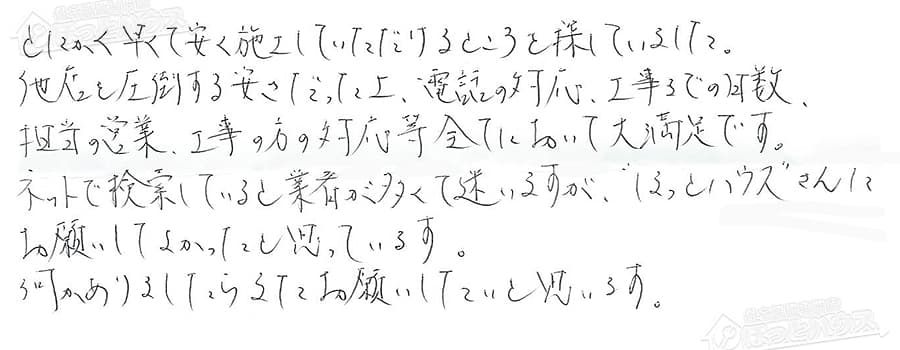 とにかく早くて安く施工していただけるところを探していました。
他店を圧倒する安さだった上、電話の対応、工事までの日数、
担当の営業、工事の方の対応等全てにおいて大満足です。
ネットで検索していると業者が多くて迷いますが、"ほっとハウス"さんに
お願いしてよかったと思っています。
何かありましたらまたお願いしたいと思います。
ほっとハウス
ほっとハウス